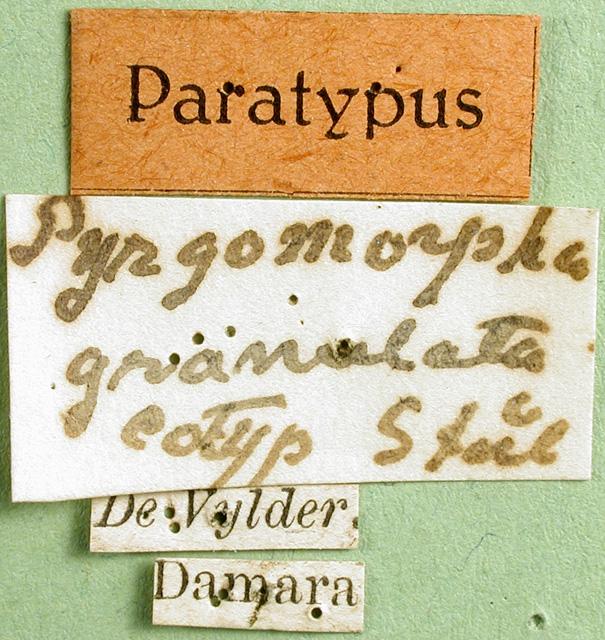 Paratypus
Pyrgomorpha
granulata
cotyp Stål
De Vylder.
Damara